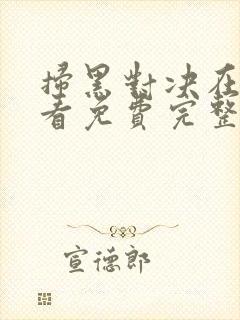 掃黑對决在
看免費完整
宣德郎